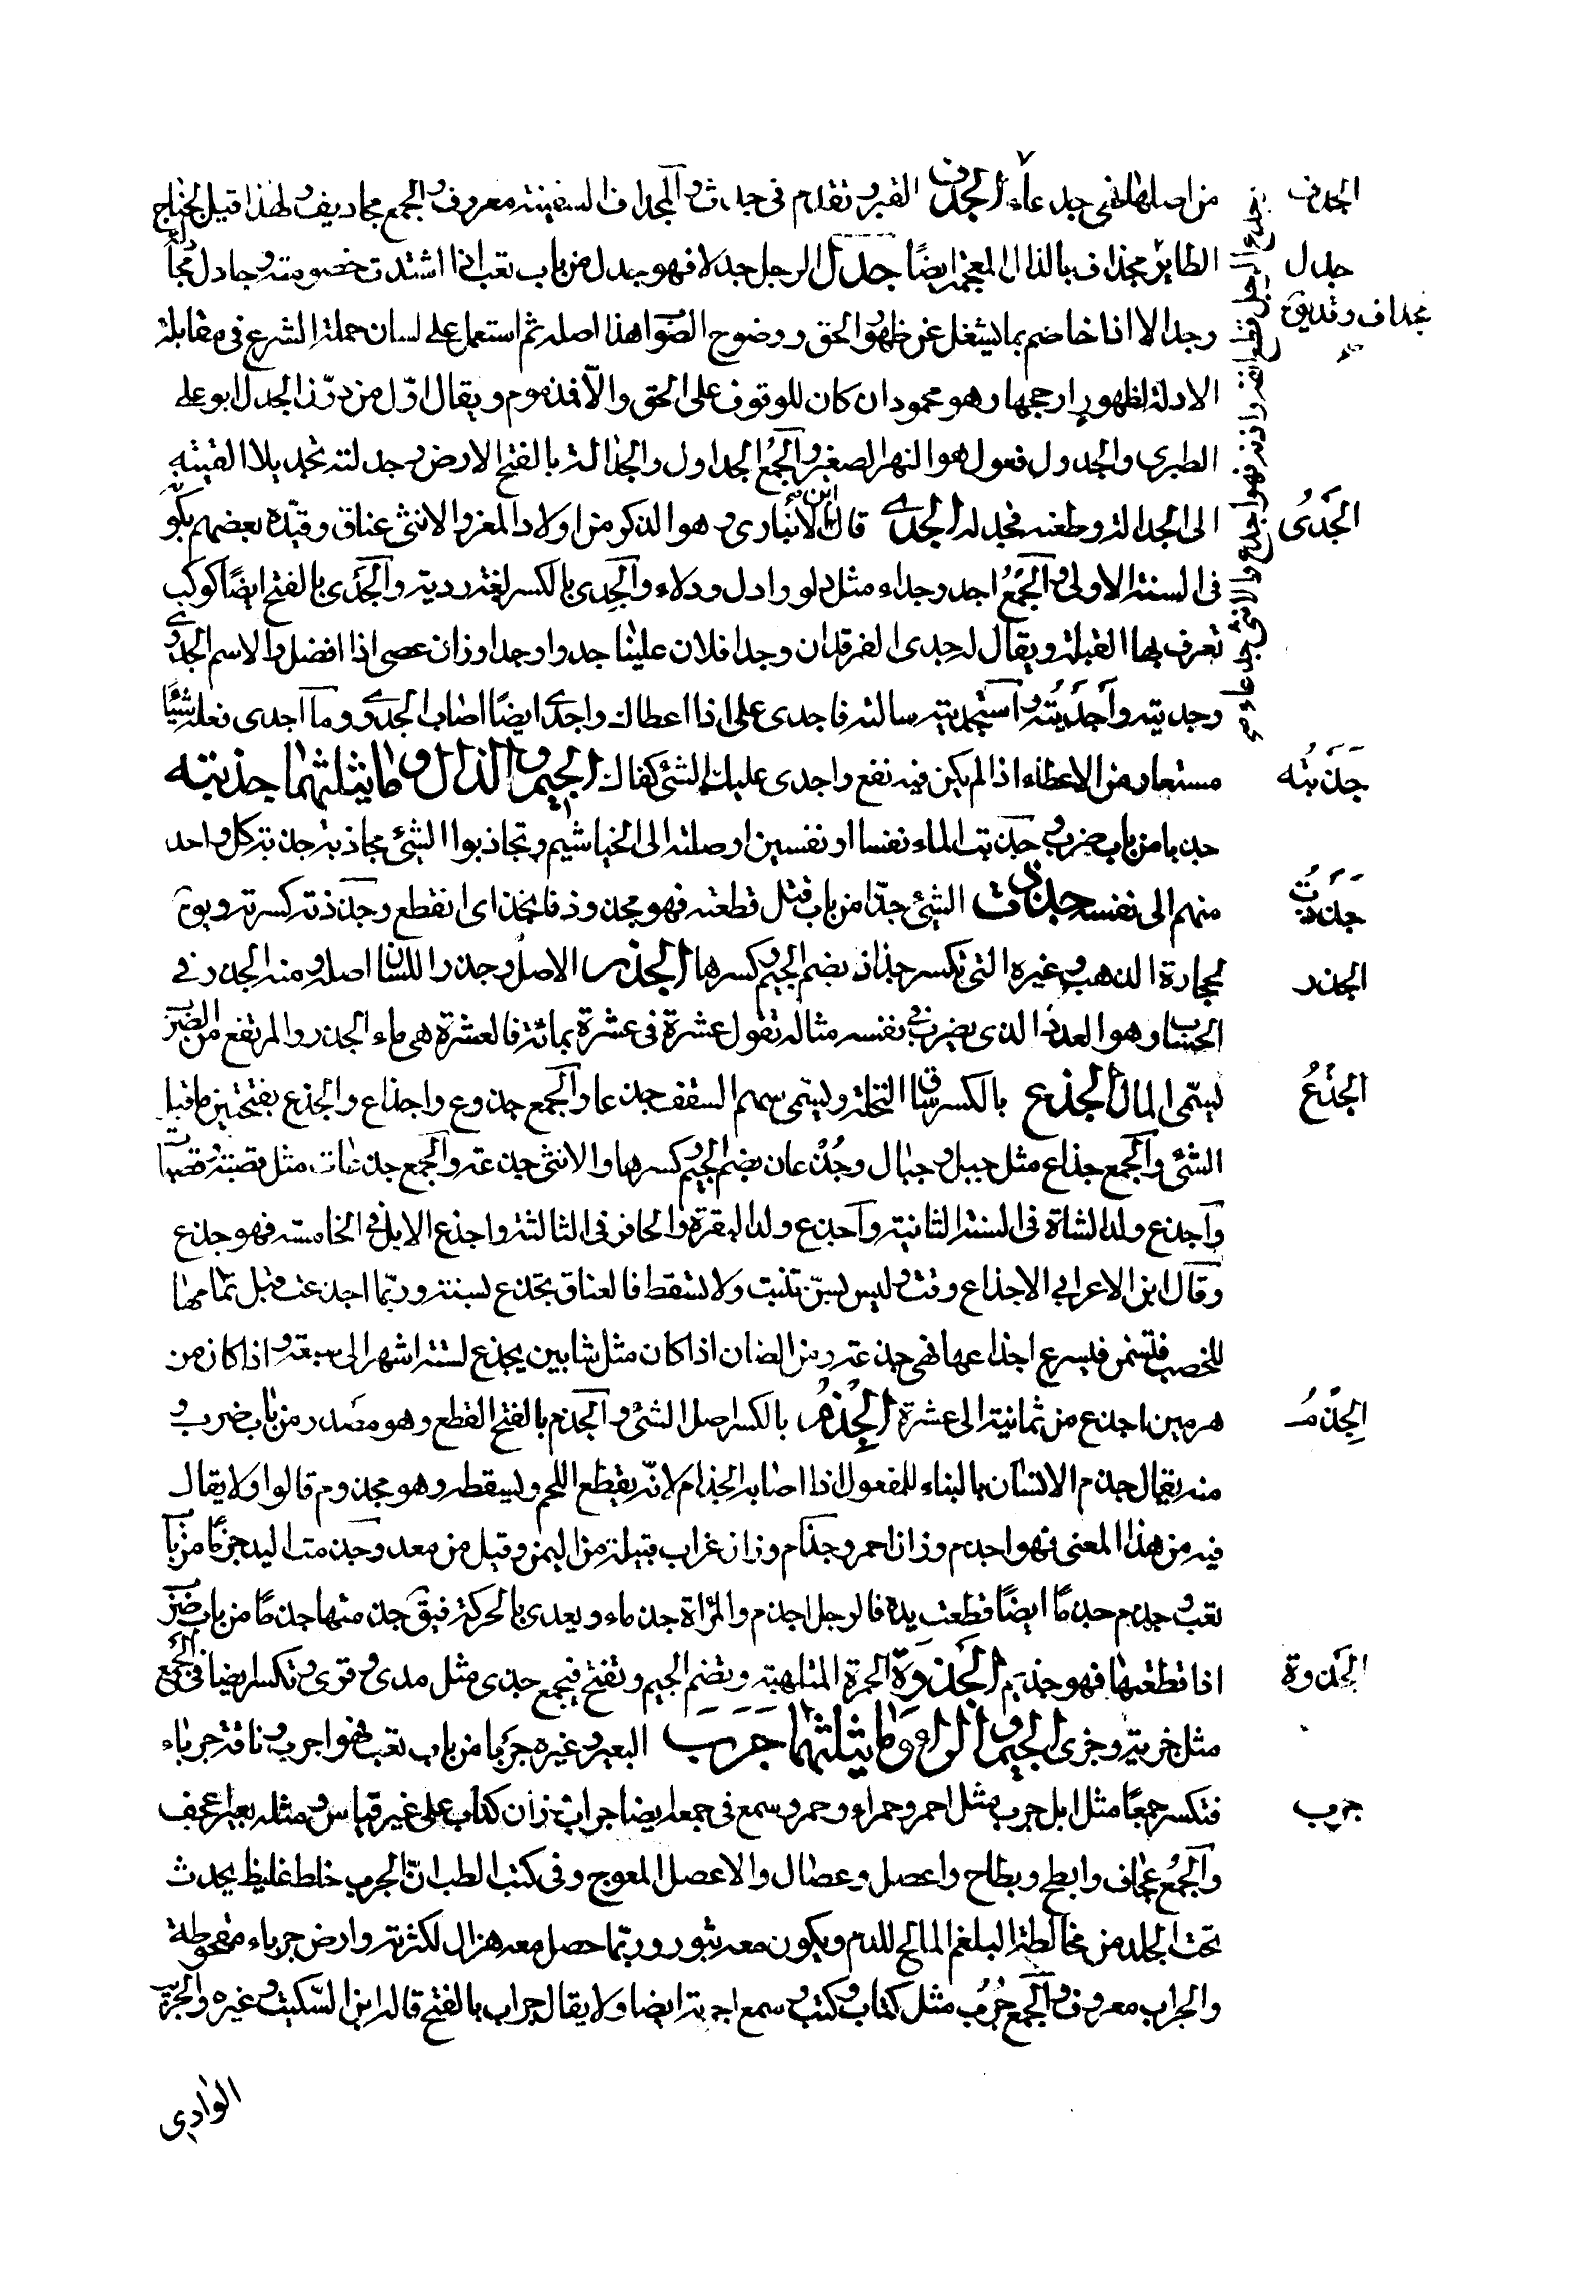 من اصلها فهي جدعاء الجدف القبر وتقدم في جدث والمجداف للسفينة معروف والجمع مجاديف ولهذا قيل لجناح
الطاير مجذاف بالذال المعجمة ايضًا جدل الرجل جدلا فهو جدل من باب تعب اذا اشتدت خصومته وجادل مجا
وجدالا اذا خاصم بما يشغل عن ظهور الحق ووضوح الصواب هذا اصله ثم استعمل على لسان حملة الشرع في مقابلة
الادلة لظهور ارجحها وهو محمود ان كان للوقوف على الحق والّا فمذموم ويقال اوّل من دوّن الجدل ابو علي
الطبري والجدول فعول هو النهر الصغير والجمع الجداول والجدالة بالفتح الارض وجدلته تجديلا القيته
الى الجدالة وطعنه فجدله الجدي قال ابن الأنباري وهو الذكر من اولاد المعز والانثى عناق وقيّده بعضهم بكو
في السنة الاولى والجمع اجد وجداء مثل دلو وادل ودلاء والجِدي بالكسر لغة ردية والجَدْي بالفتح ايضًا كوكب
تعرف بها القبلة ويقال له جدى الفرقدان وجدا فلان علينا جدوا وجدا وزان عصى اذا افضل والاسم الجدوى
وجديته وأجديته واستجديته سالته فاجدى على اذا اعطاك واجدى ايضًا اصاب الجدوى وما اجدى فعله شيئًا
مستعار من الاعطاء اذا لم يكن فيه نفع واجدى عليك الشئ كفاك الجيم والذال وما يثلثهما جذبته
جذبا من باب ضرب وجذبت الماء نفسا او نفسين اوصلته الى الخياشيم وتجاذبوا الشئ مجاذبة جذبه كل واحد
منهم الى نفسه جذذت الشئ جذّا من باب قتل قطعته فهو مجذوذ فانجذ اى انقطع وجذذته كسرته ويق
لحجارة الذهب وغيره التي تكسر جذاذ بضم الجيم وكسرها الجذر الاصل وجذر اللسان اصله ومنه الجذر في
الحساب وهو العدد الذي يضرب في نفسه مثاله تقول عشرة في عشرة بمائة فالعشرة هي الجذر والمرتفع من الضرب
يسمّى المال الجذع بالكسر ساق النخلة ويسمى سهم السقف جذعا والجمع جذوع واجذاع والجذع بفتحتين ما قبل
الشئ والجمع جذاع مثل جبل وجبال وجُذْعان بضم الجيم وكسرها والانثى جذعة والجمع جذعات مثل قصبة وقصبات
وأجذع ولد الشاة في السنة الثانية وأجذع ولد البقرة والحافر في الثالثة واجذع الابل في الخامسة فهو جذع
وقال ابن الاعرابي الاجذاع وقت وليس بسنّ تنبت ولا تسقط فالعناق تجذع لسنة وربّما اجذعت قبل تمامها
للخصب فتسمن فيسرع اجذاعها فهي جذعة ومن الضان اذا كان مثل شابين يجذع لستة اشهر الى سبعة واذا كان من
هرمين اجذع من ثمانية الى عشرة الجِذمُ بالكسر اصل الشئ والجذم بالفتح القطع وهو مصدر من باب ضرب و
منه يقال جذم الانسان بالبناء للمفعول اذا اصابه الجذام لانّه يقطع اللحم ويسقطه وهو مجذوم قالوا ولا يقال
فيه من هذا المعنى فهو اجذم وزان احمر وجذام وزان غراب قبيلة من اليمن وقيل من معد وجذمت اليد جزمًا من با
تعب وجذم جذمًا ايضًا قطعت يده فالرجل اجذم والمرأة جذماء ويعدى بالحركة فيق جذمتها جذمًا من باب ضرب
اذا قطعتها فهو جذيم الجذوة الجمرة الملتهبة وتضم الجيم وتفتح فتجمع جذى مثل مدى وقرى وتكسر ايضا في الجمع
مثل خرية وجزى الجيم والراء وما يثلثهما جَرَبَ البعير وغيره جَرَبا من باب تعب فهو اجرب وناقة جرباء
فتكسر جمعًا مثل ابل جرب مثل احمر وحمراء وحمر وسمع في جمعه ايضا جراب وزان كتاب على غير قياس ومثله بعير اعجف
والجمع عجاف وابطح وبطاح واعصل وعصال والاعصل المعوج وفي كتب الطب انّ الجرب خلط غليظ يحدث
تحت الجلد من مخالطة البلغم المالح للدم ويكون معه بثور وربّما حصل معه هزال لكثرته وارض جرباء مقحوطة
والجراب معروف والجمع جُرُب مثل كتاب وكتب وسمع اجربة ايضا ولا يقال جراب بالفتح قاله ابن السّكيت وغيره والجريب
الوادي
الجدف
جدل
مجداف وقد يق
الجَدْىُ
جَذَبتُه
جذذتُ
الجذر
الجذعُ
الجِذْمُ
الجذوة
جرب
جدع الرجل قطع انفه واذنه فهو اجدع والانثى جدعاء